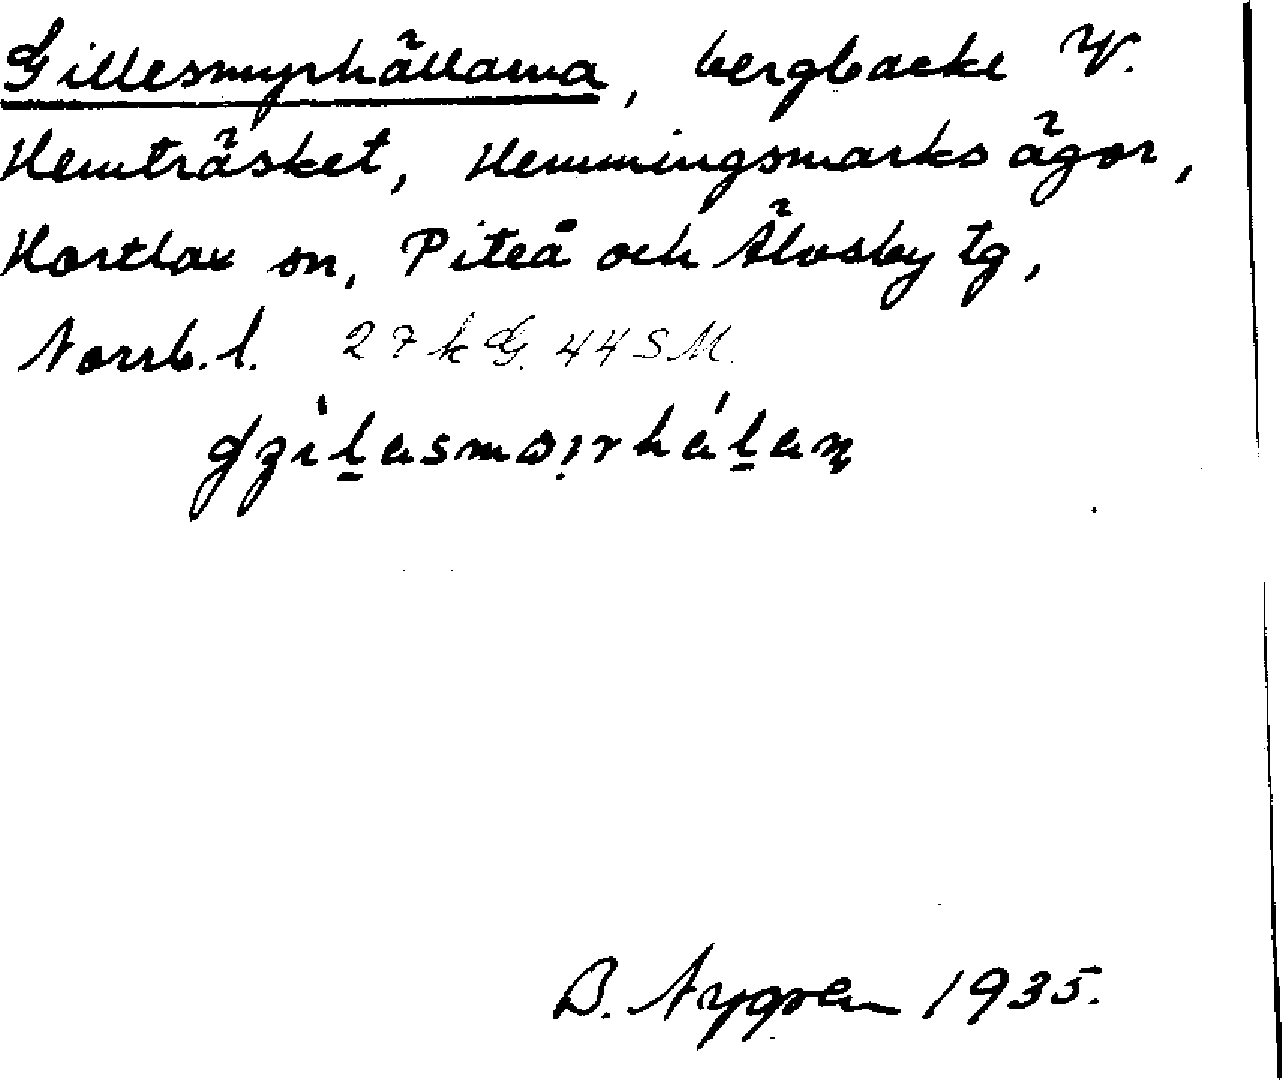 Gillesmyrhällarna, bergbacke V.
Hemträsket, Hemmingsmarks ägor,
Hortlax sn, Piteå och Älvsby tg,
Norrb. l. 27 k G. 44 S M.
B. Nygren 1935.